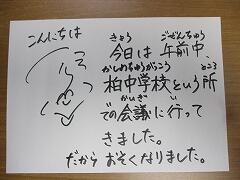 こんにちは
きょう ごぜんちゅう
今日は 午前中、
かしわちゅうがっこう ところ
柏中学校という所
かいぎ い
での会議に行って
きました。
だから おそくなりました。